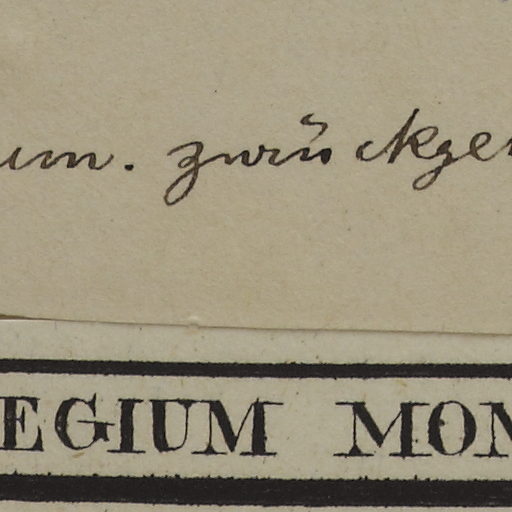 um. zurückge
EGIUM MON